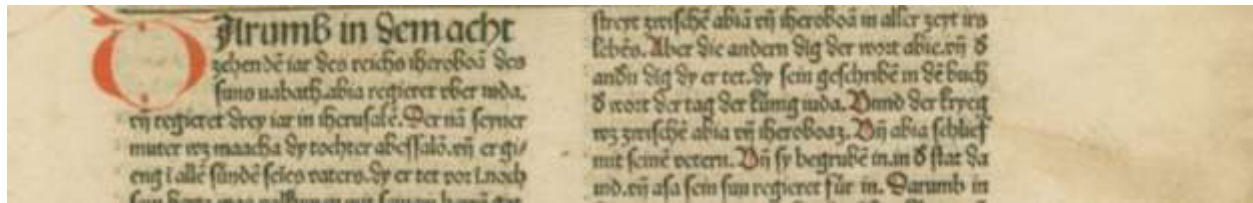 Darumb in dem acht
zehendē iar des reichs iheroboā des
suns nabath. abia regieret vber iuda.
vn̄ regieret drey iar in iherusalē. Der nā seyner
muter wz maacha dy tochter abessalō. vn̄ er gi/
eng ī allē sündē seins vaters. dy er tet vor ī. noch
streyt zwischē abiā vn̄ iheroboā in aller zeyt irs
lebēs. Aber die andern dig der wort abie. vn̄ d
andn̄ dig dy er tet. dy sein geschribē in dē buch
d wort der tag der künig iuda. Vnnd der kryeg
wz zwischē abia vn̄ iheroboaz. Vn̄ abia schlief
mit seinē vetern. Vn̄ sy begrubē in. in d stat da
uid. vn̄ asa sein sun regieret für in. Darumb in